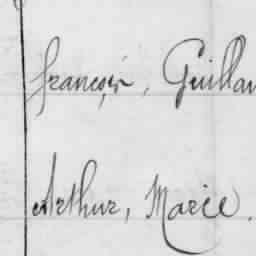 François, Guillau
Arthur, Marie.